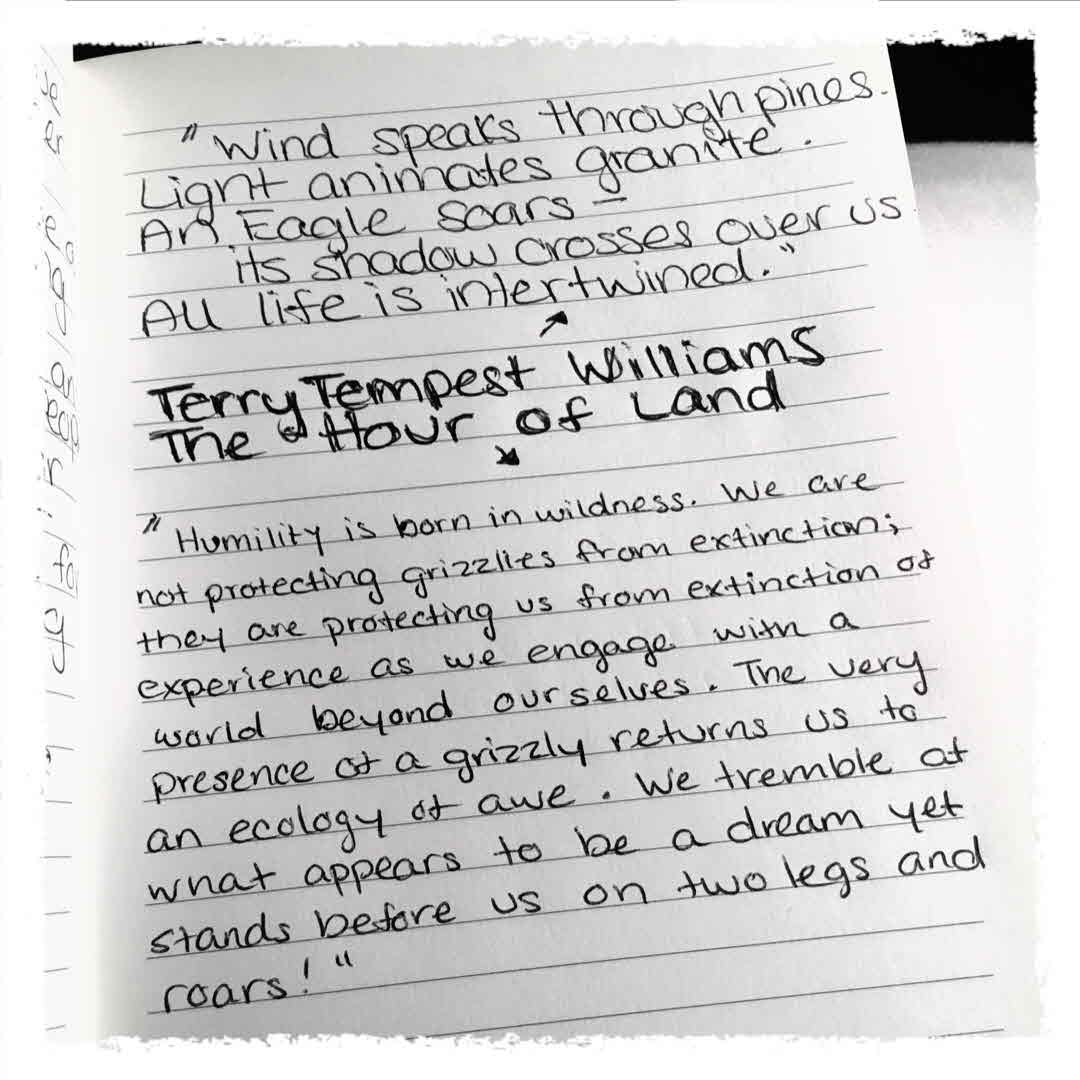 "Wind speaks through pines.
Light animates granite.
An Eagle soars —
its shadow crosses over us
All life is intertwined."
Terry Tempest Williams
The Hour of Land
"Humility is born in wildness. We are
not protecting grizzlies from extinction;
they are protecting us from extinction of
experience as we engage with a
world beyond ourselves. The very
presence of a grizzly returns us to
an ecology of awe. We tremble at
what appears to be a dream yet
stands before us on two legs and
roars!"